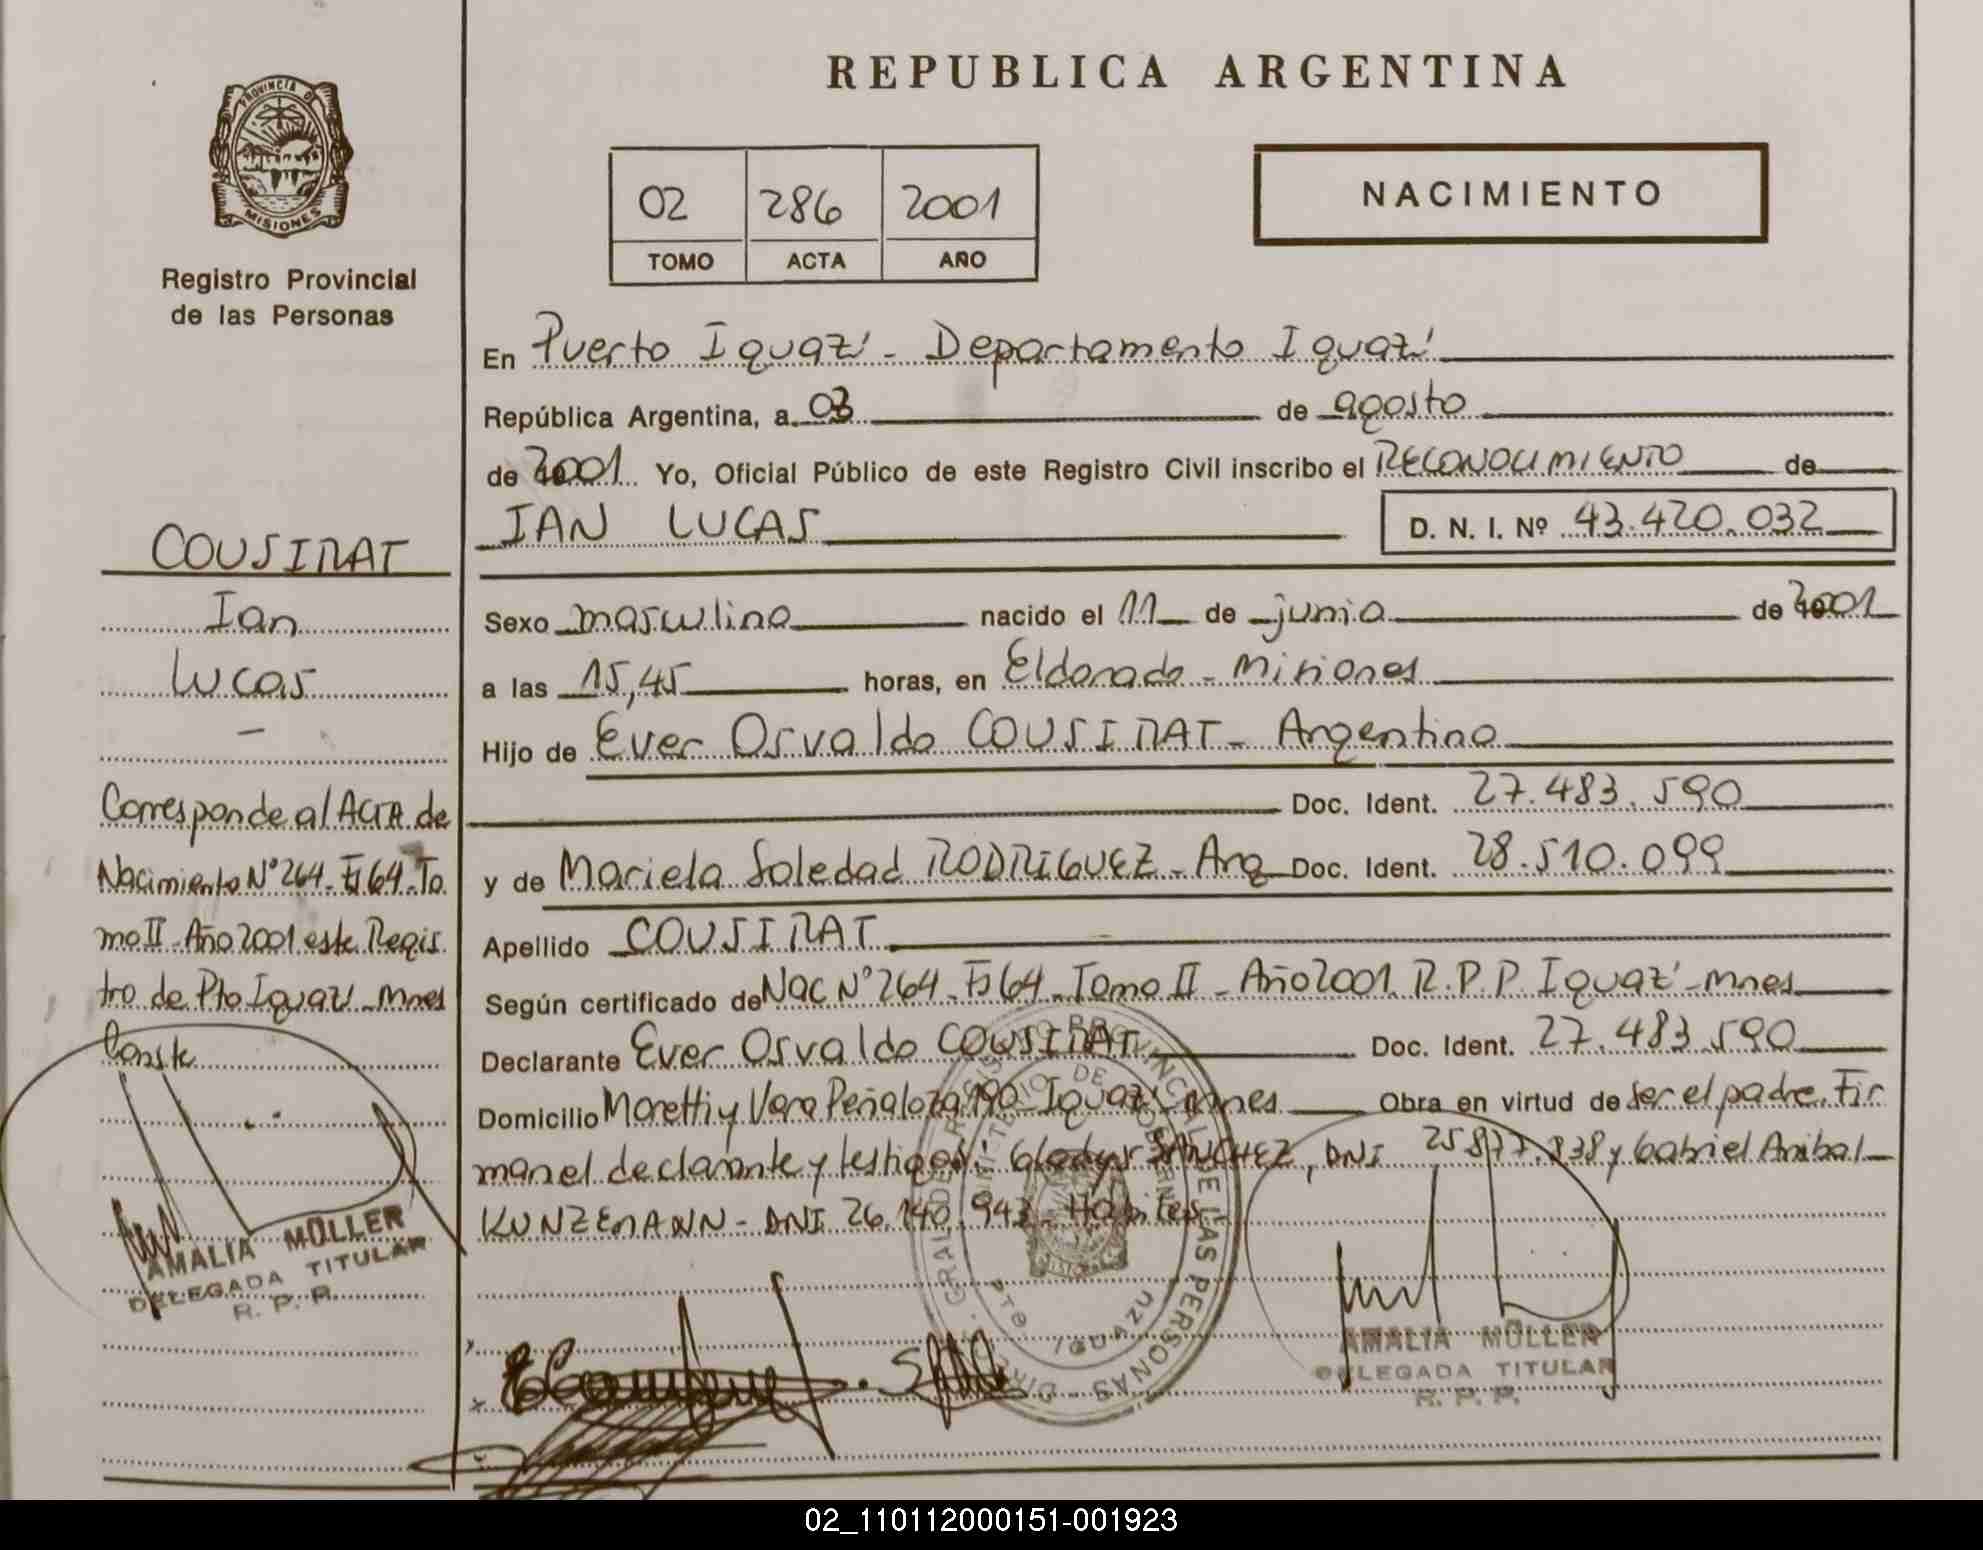 REPUBLICA ARGENTINA
PROVINCIA DE
MISIONES
Registro Provincial
de las Personas
02 286 2001
TOMO ACTA AÑO
NACIMIENTO
En Puerto Iguazú - Departamento Iguazú
República Argentina, a 03 de agosto
de 2001 Yo, Oficial Público de este Registro Civil inscribo el RECONOCIMIENTO de
IAN LUCAS D. N. I. Nº 43.420.032
COUSIRAT
Ian
Lucas
-
Corresponde al ACTA de
Nacimiento N° 264 - Fº 64 - To
mo II - Año 2001 este Regis
tro de Pto Iguazú - Mnes
Conste
AMALIA MÜLLER
DELEGADA TITULAR
R. P. P.
Sexo masculino nacido el 11 de junio de 2001
a las 15,45 horas, en Eldorado - Misiones
Hijo de Ever Osvaldo COUSIRAT - Argentino
Doc. Ident. 27.483.590
y de Mariela Soledad RODRIGUEZ - Arg Doc. Ident. 28.510.099
Apellido COUSIRAT
Según certificado de Nac N° 264 - Fº 64 - Tomo II - Año 2001. R.P.P. Iguazú - mnes
Declarante Ever Osvaldo COUSIRAT Doc. Ident. 27.483.590
Domicilio Moretti y Vera Peñaloza 190 - Iguazú - mnes Obra en virtud de ser el padre. Fir
man el declarante y testigos: Gladys SANCHEZ, DNI 25.877.838 y Gabriel Anibal
KUNZEMANN - DNI 26.140.943 - Hábiles
DIREC. GRAL. DE REGISTRO PROVINCIAL DE LAS PERSONAS
MINISTERIO DE GOBIERNO
Pto IGUAZU
AMALIA MÜLLER
DELEGADA TITULAR
R. P. P.
02_110112000151-001923